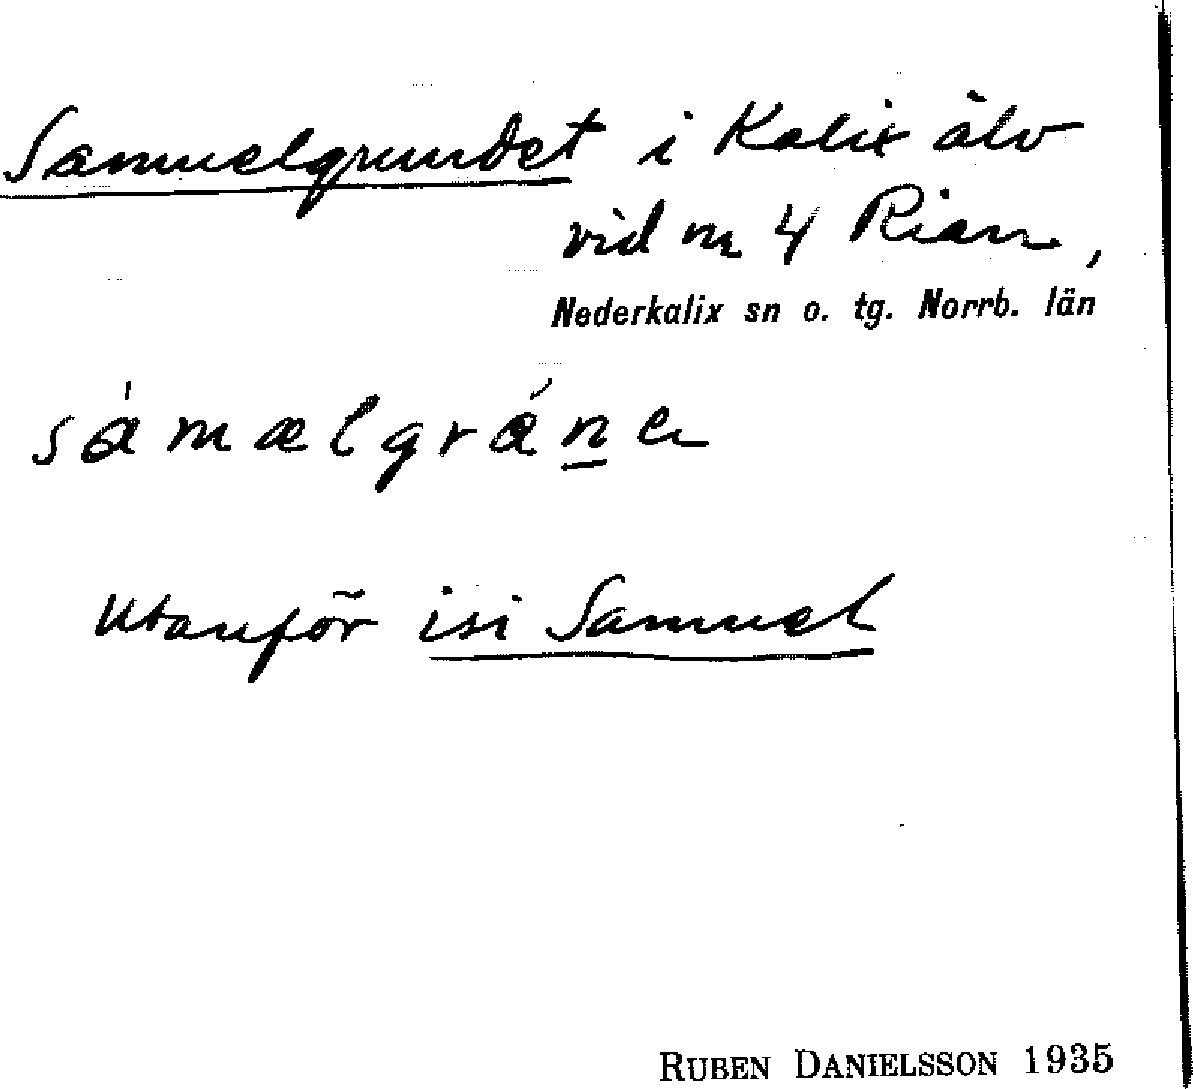 Samuelgrundet i Kalix älv
vid nr 4 Rian,
Nederkalix sn o. tg. Norrb. län
sámælgráne
Utanför isi Samuel
RUBEN DANIELSSON 1935